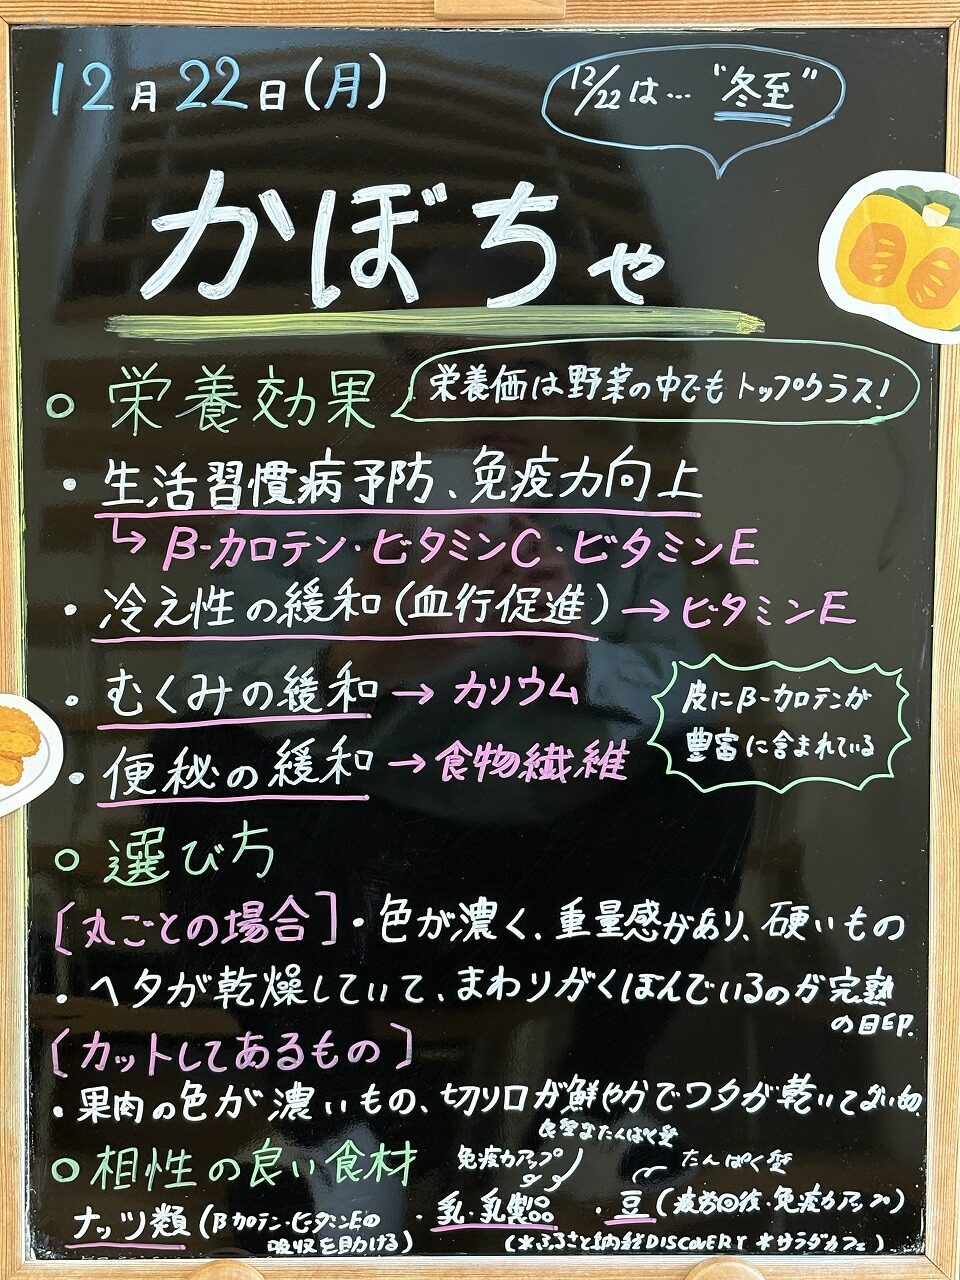 12月22日(月)
12/22は… "冬至"
かぼちゃ
○ 栄養効果
栄養価は野菜の中でもトップクラス!
・生活習慣病予防、免疫力向上
↳ β-カロテン・ビタミンC・ビタミンE
・冷え性の緩和(血行促進) → ビタミンE
・むくみの緩和 → カリウム
皮にβ-カロテンが
豊富に含まれている
・便秘の緩和 → 食物繊維
○ 選び方
[丸ごとの場合]・色が濃く、重量感があり、硬いもの
・ヘタが乾燥していて、まわりがくぼんでいるのが完熟
の目印。
[カットしてあるもの]
・果肉の色が濃いもの、切り口が鮮やかでワタが乾いてないもの
○ 相性の良い食材
良質なたんぱく質
免疫力アップ
たんぱく質
ナッツ類(βカロテン・ビタミンEの
吸収を助ける)
・乳・乳製品
・豆(疲労回復・免疫力アップ)
(*ふるさと納税DISCOVERY *サラダカフェ)